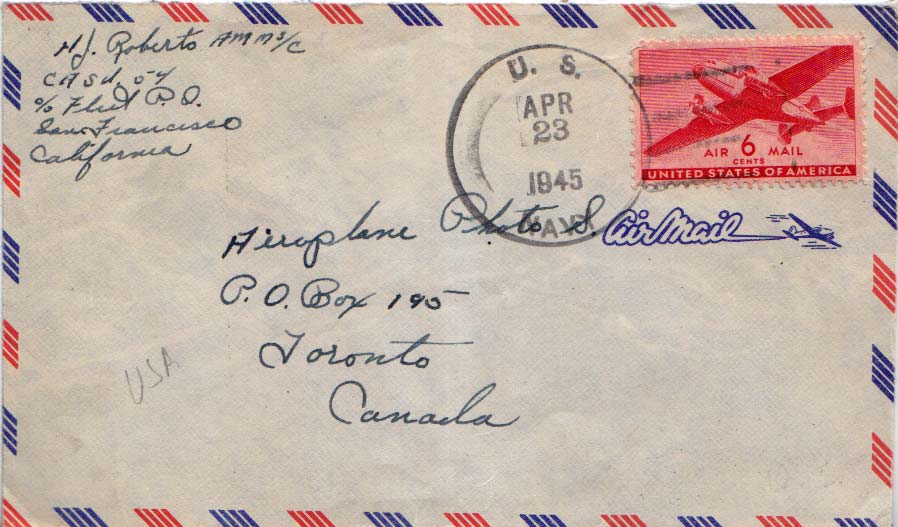 H.J. Roberto AMM 3/C
CASU. 54
c/o Fleet P.O.
San Francisco
California
U. S.
APR
23
1945
NAVY
AIR 6 MAIL
CENTS
UNITED STATES OF AMERICA
Air Mail
Aeroplane Photo S.
P.O. Box 195
Toronto
Canada
USA